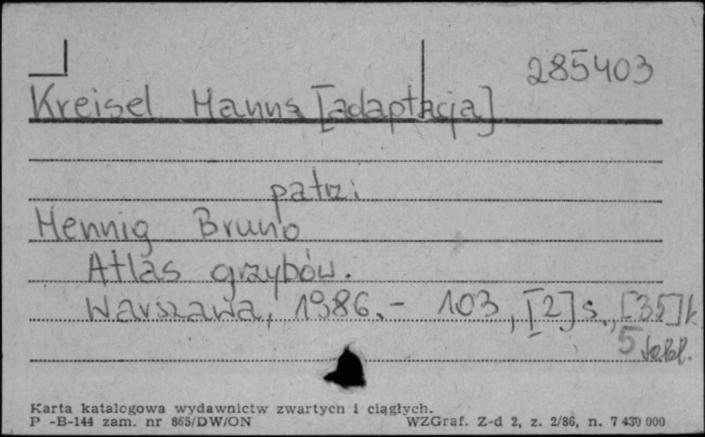 285403
Kreisel Hanns [adaptacja]
patrz:
Hennig Bruno
Atlas grzybów.
Warszawa, 1986. - 103, [2] s., [35] k
5 tabl.
Karta katalogowa wydawnictw zwartych i ciągłych.
P -B-144 zam. nr 865/DW/ON WZGraf. Z-d 2, z. 2/86, n. 7 430 000